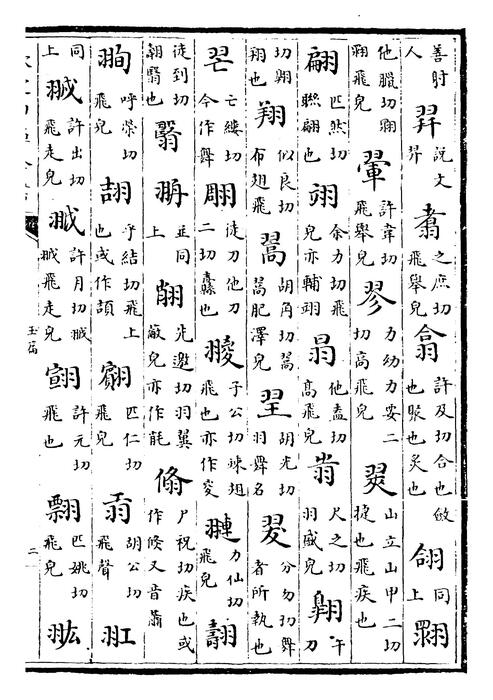 善射人 羿 說文羿 翥 之庶切飛舉皃 翕 許及切合也斂也聚也炙也 同上
他臘切 飛皃 翬 許韋切飛舉皃 翏 力幼力安二切高飛皃 翜 山立山甲二切捷也飛疾也
翩 匹然切聯翩也 翊 余力切飛皃亦輔翊 𦐇 他盍切高飛皃 翤 尺之切羽盛皃 翱 午刀
切翱翔也 翔 似良切布翅飛 翯 胡角切翯肥澤皃 胡光切羽舞名 翇 分勿切舞者所執也
亡縷切今作舞 翢 徒刀他刀二切纛也 翪 子公切竦翅飛也亦作㚇 翴 力仙切飛皃 翿
徒到切翿翳也 翳 並同上 先邀切羽翼蔽皃亦作 翛 尸祝切疾也或作倏又音蕭
呼榮切飛皃 翓 乎結切飛上也或作頡 匹仁切飛皃 胡公切飛聲 䎕
同上 許出切飛走皃 許月切 飛走皃 翧 許元切飛也 翲 匹姚切飛皃 翃
玉篇 二